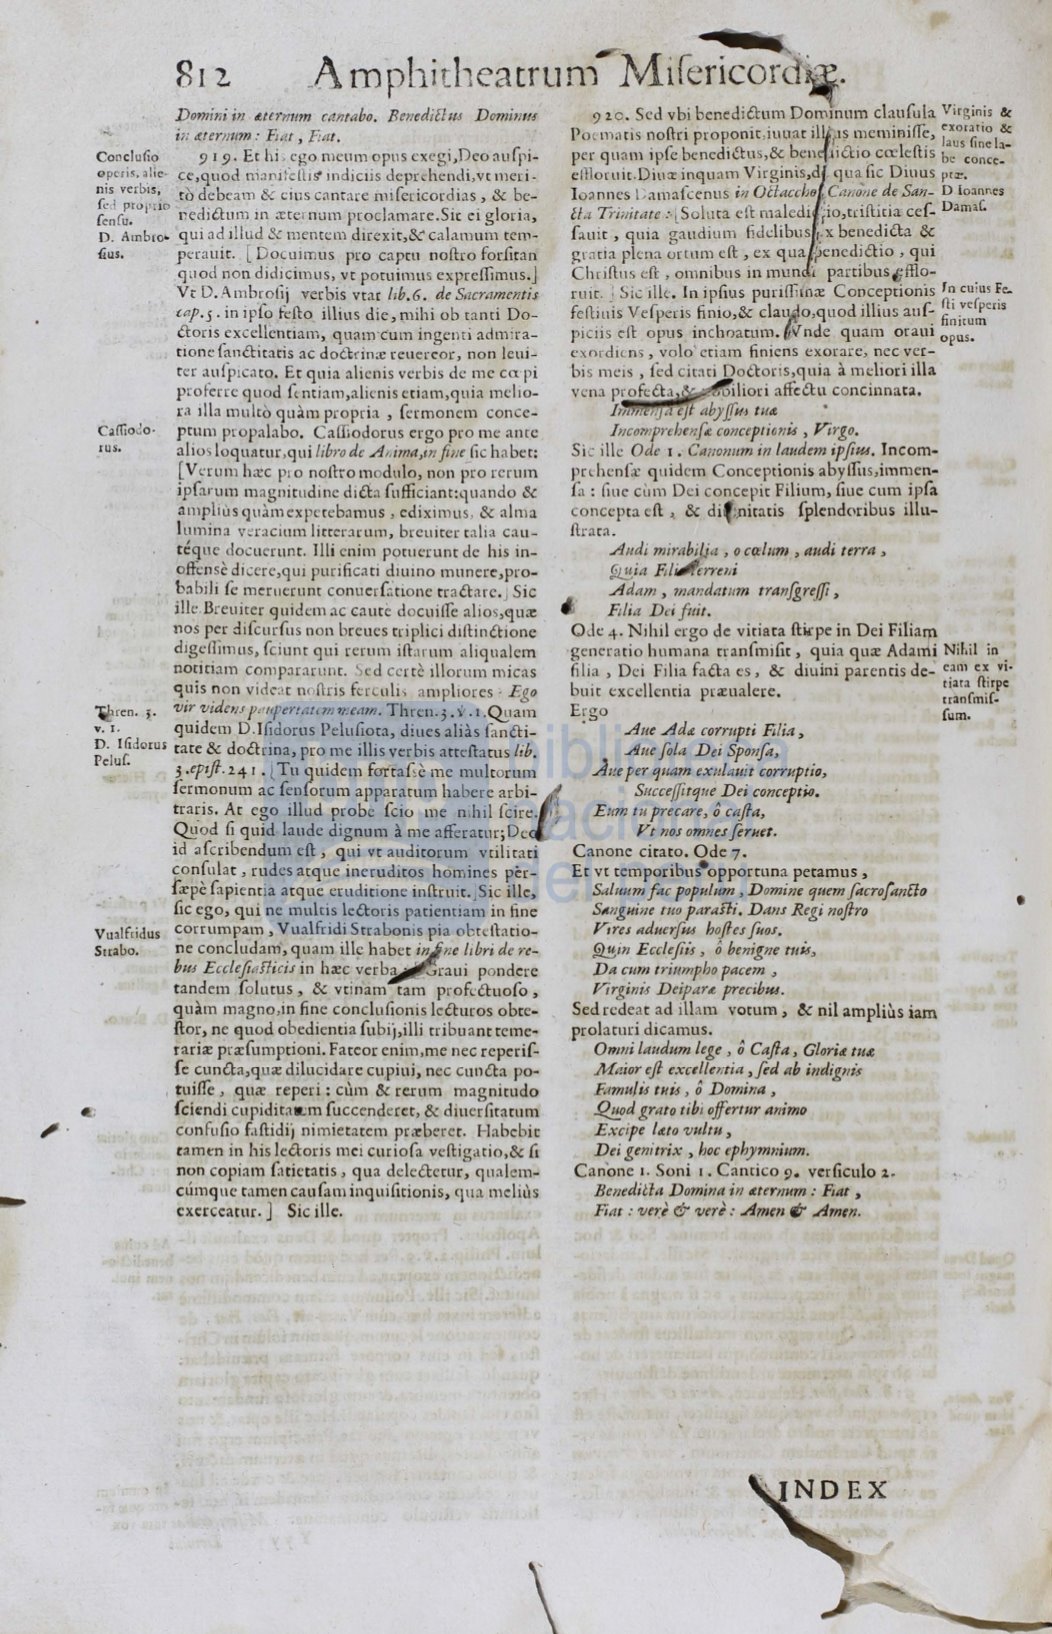 812 Amphitheatrum Misericordiæ.
Domini in æternum cantabo. Benedictus Dominus
in æternum: Fiat, Fiat.
Conclusio
operis, alie-
nis verbis,
sed proprio
sensu.
D. Ambro-
sius.
919. Et his ego meum opus exegi, Deo auspi-
ce, quod manifestis indiciis deprehendi, vt meri-
tò debeam & eius cantare misericordias, & be-
nedictum in æternum proclamare. Sit ei gloria,
qui ad illud & mentem direxit, & calamum tem-
perauit. [Docuimus pro captu nostro forsitan
quod non didicimus, vt potuimus expressimus.]
Vt D. Ambrosij verbis vtar lib. 6. de Sacramentis
cap. 5. in ipso festo illius die, mihi ob tanti Do-
ctoris excellentiam, quam cum ingenti admira-
tione sanctitatis ac doctrinæ reuereor, non leui-
ter auspicato. Et quia alienis verbis de me cœpi
proferre quod sentiam, alienis etiam, quia melio-
ra illa multò quàm propria, sermonem conce-
Cassiodo-
rus.
ptum propalabo. Cassiodorus ergo pro me ante
alios loquatur, qui libro de Anima, in fine sic habet:
[Verum hæc pro nostro modulo, non pro rerum
ipsarum magnitudine dicta sufficiant: quando &
ampliùs quàm expetebamus, ediximus, & alma
lumina veracium litterarum, breuiter talia cau-
téque docuerunt. Illi enim potuerunt de his in-
offensè dicere, qui purificati diuino munere, pro-
babili se meruerunt conuersatione tractare.] Sic
ille. Breuiter quidem ac cautè docuisse alios, quæ
nos per discursus non breues triplici distinctione
digessimus, sciunt qui rerum istarum aliqualem
notitiam compararunt. Sed certè illorum micas
quis non videat nostris ferculis ampliores? Ego
Thren. 3.
v. 1.
D. Isidorus
Pelus.
vir videns paupertatem meam. Thren. 3. v. 1. Quam
quidem D. Isidorus Pelusiota, diues aliàs sancti-
tate & doctrina, pro me illis verbis attestatus lib.
3. epist. 241. [Tu quidem fortassè me multorum
sermonum ac sensorum apparatum habere arbi-
traris. At ego illud probè scio me nihil scire.
Quod si quid laude dignum à me afferatur; Deo
id ascribendum est, qui vt auditorum vtilitati
consulat, rudes atque ineruditos homines per-
sæpè sapientia atque eruditione instruit.] Sic ille,
sic ego, qui ne multis lectoris patientiam in fine
Vualfridus
Strabo.
corrumpam, Vualfridi Strabonis pia obtestatio-
ne concludam, quam ille habet in fine libri de re-
bus Ecclesiasticis in hæc verba: [Graui pondere
tandem solutus, & vtinam tam profectuoso,
quàm magno, in fine conclusionis lecturos obte-
stor, ne quod obedientia subij, illi tribuant teme-
rariæ præsumptioni. Fateor enim, me nec reperis-
se cuncta, quæ dilucidare cupiui, nec cuncta po-
tuisse, quæ reperi: cùm & rerum magnitudo
sciendi cupiditatem succenderet, & diuersitatum
confusio fastidij nimietatem præberet. Habebit
tamen in his lectoris mei curiosa vestigatio, & si
non copiam satietatis, qua delectetur, qualem-
cúmque tamen causam inquisitionis, qua meliùs
exerceatur.] Sic ille.
920. Sed vbi benedictum Dominum clausula
Poematis nostri proponit, iuuat illius meminisse,
per quam ipse benedictus, & benedictio cœlestis
effloruit. Diuæ inquam Virginis, de qua sic Diuus
Ioannes Damascenus in Octaecho, Canone de San-
cta Trinitate: [Soluta est maledictio, tristitia ces-
sauit, quia gaudium fidelibus ex benedicta &
gratia plena ortum est, ex qua benedictio, qui
Christus est, omnibus in mundi partibus efflo-
ruit.] Sic ille. In ipsius purissimæ Conceptionis
festiuis Vesperis finio, & claudo, quod illius aus-
piciis est opus inchoatum. Vnde quam oraui
exordiens, volo etiam finiens exorare, nec ver-
bis meis, sed citati Doctoris, quia à meliori illa
vena profecta, & nobiliori affectu concinnata.
Virginis &
exoratio &
laus sine la-
be conce-
ptæ.
D Ioannes
Damas.
In cuius Fe-
sti vesperis
finitum
opus.
Immensa est abyssus tuæ
Incomprehensæ conceptionis, Virgo.
Sic ille Ode 1. Canonum in laudem ipsius. Incom-
prehensæ quidem Conceptionis abyssus, immen-
sa: siue cùm Dei concepit Filium, siue cum ipsa
concepta est, & dignitatis splendoribus illu-
strata.
Audi mirabilia, o cœlum, audi terra,
Quia Filia terreni
Adam, mandatum transgressi,
Filia Dei fuit.
Ode 4. Nihil ergo de vitiata stirpe in Dei Filiam
generatio humana transmisit, quia quæ Adami
filia, Dei Filia facta es, & diuini parentis de-
buit excellentia præualere.
Nihil in
eam ex vi-
tiata stirpe
transmis-
sum.
Ergo
Aue Adæ corrupti Filia,
Aue sola Dei Sponsa,
Aue per quam exulauit corruptio,
Successitque Dei conceptio.
Eum tu precare, ô casta,
Vt nos omnes seruet.
Canone citato. Ode 7.
Et vt temporibus opportuna petamus,
Saluum fac populum, Domine quem sacrosancto
Sanguine tuo parasti. Dans Regi nostro
Vires aduersus hostes suos.
Quin Ecclesiis, ô benigne tuis,
Da cum triumpho pacem,
Virginis Deiparæ precibus.
Sed redeat ad illam votum, & nil ampliùs iam
prolaturi dicamus.
Omni laudum lege, ô Casta, Gloria tua
Maior est excellentia, sed ab indignis
Famulis tuis, ô Domina,
Quod grato tibi offertur animo
Excipe læto vultu,
Dei genitrix, hoc ephymnium.
Canone 1. Soni 1. Cantico 9. versiculo 2.
Benedicta Domina in æternum: Fiat,
Fiat: verè & verè: Amen & Amen.
INDEX
biblioteca
nacional
del perú